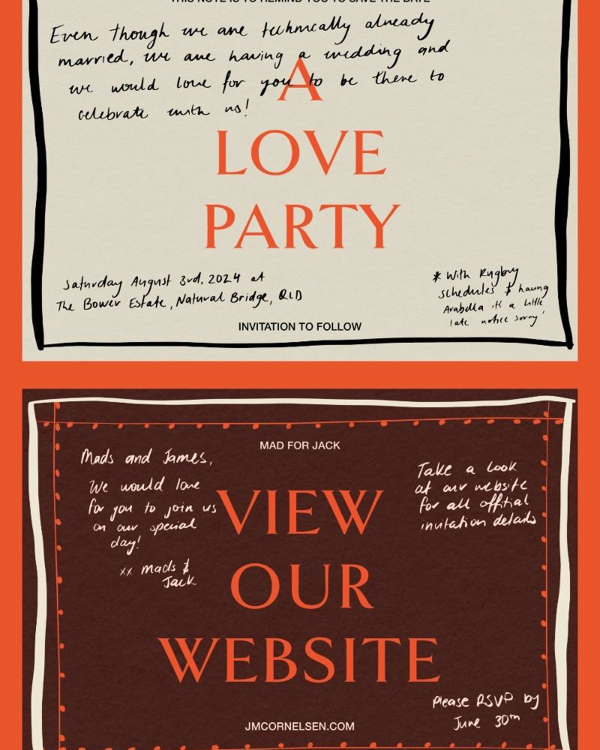 THIS NOTE IS TO REMIND YOU TO SAVE THE DATE
Even though we are technically already
married, we are having a wedding and
we would love for you to be there to
celebrate with us!
A
LOVE
PARTY
Saturday August 3rd, 2024 at
The Bower Estate, Natural Bridge, QLD
* With Rugby
schedules & having
Arabella it's a little
late notice sorry!
INVITATION TO FOLLOW
MAD FOR JACK
Mads and James,
We would love
for you to join us
on our special
day!
xx Mads &
Jack
VIEW
OUR
WEBSITE
Take a look
at our website
for all offitial
invitation details
Please RSVP by
June 30th
JMCORNELSEN.COM